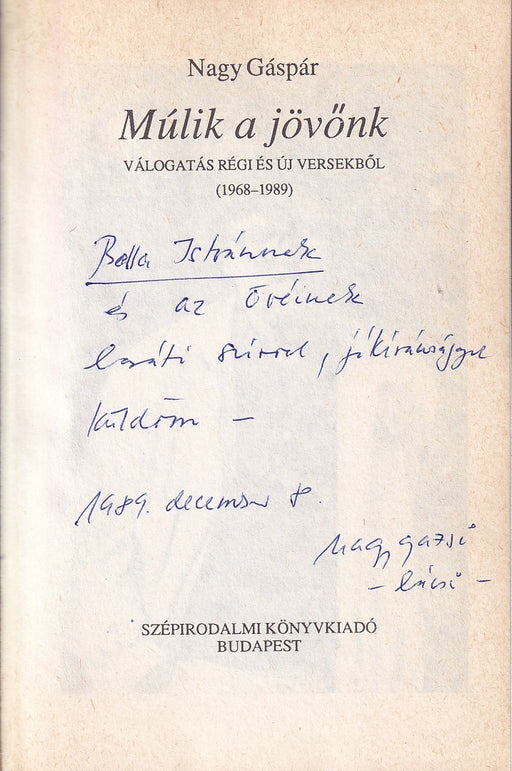 Nagy Gáspár
Múlik a jövőnk
VÁLOGATÁS RÉGI ÉS ÚJ VERSEKBŐL
(1968–1989)
Bella Istvánnek
és az Övéinek
baráti szívvel, jókívánsággal
küldöm –
1989. december 8.
Nagy gazsi
–  –
SZÉPIRODALMI KÖNYVKIADÓ
BUDAPEST